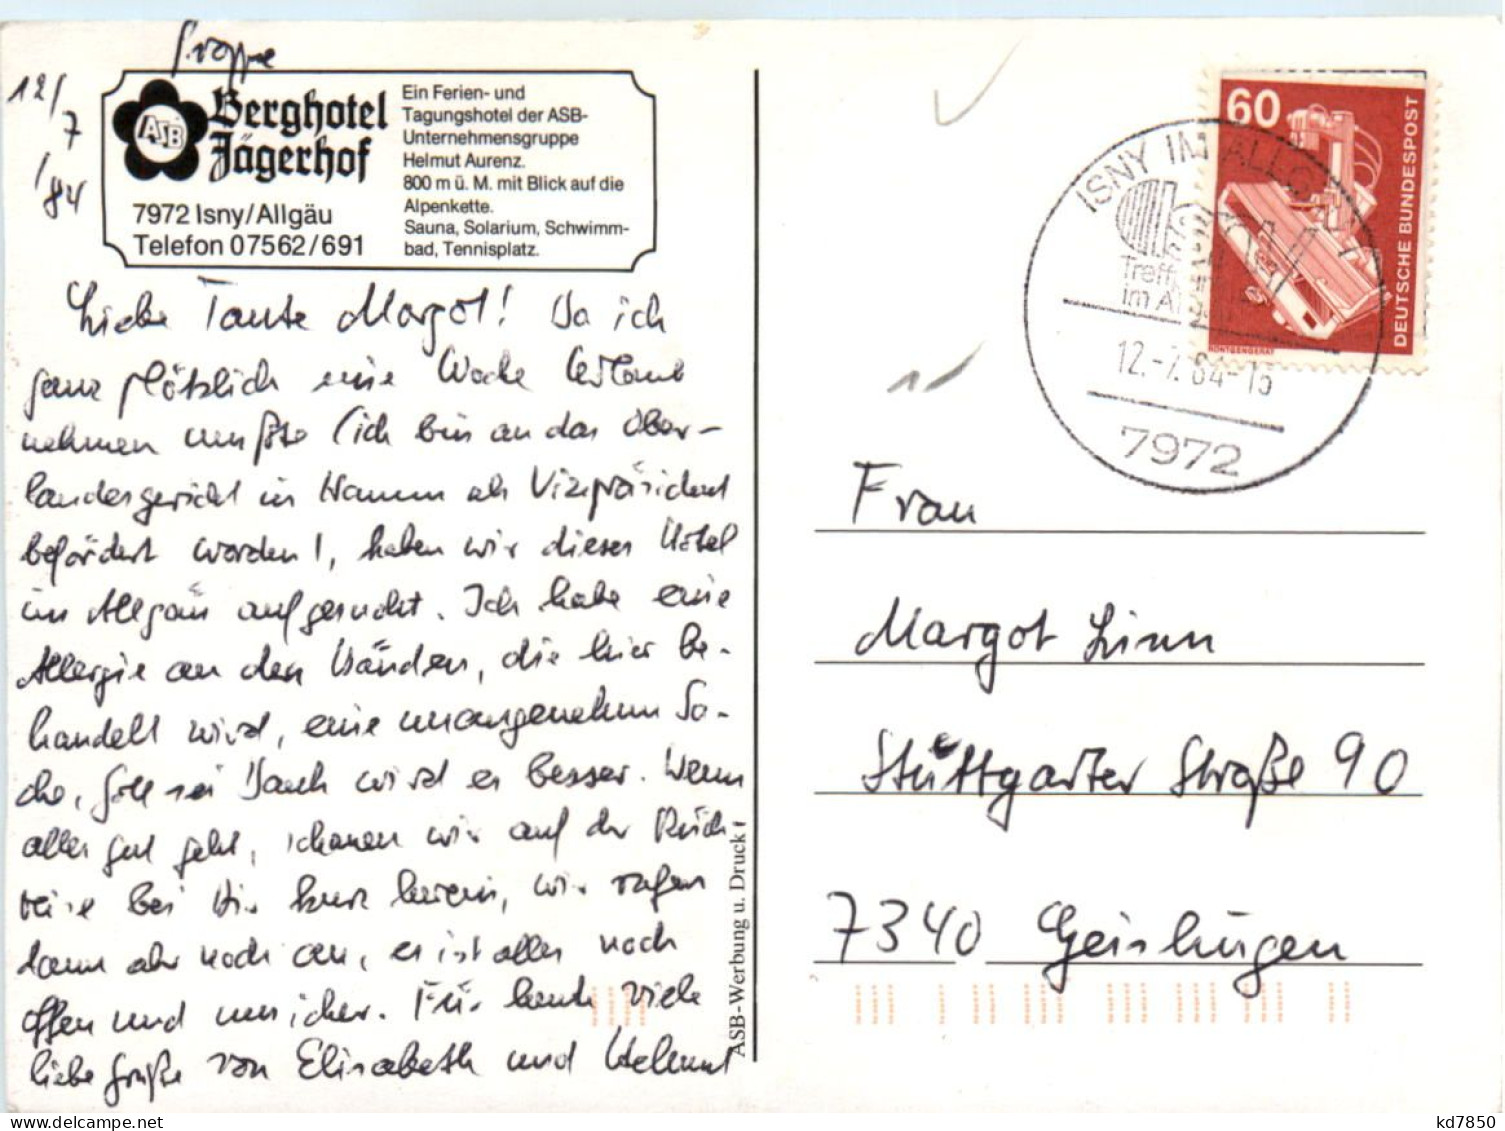 12/
7
/84
ASB
Berghotel
Jägerhof
7972 Isny/Allgäu
Telefon 07562/691
Ein Ferien- und
Tagungshotel der ASB-
Unternehmensgruppe
Helmut Aurenz.
800 m ü. M. mit Blick auf die
Alpenkette.
Sauna, Solarium, Schwimm-
bad, Tennisplatz.
Liebe Tante Margot! Da ich
ganz plötzlich eine Woche Urlaub
nehmen mußte (ich bin an das Ober-
landesgericht in Hamm als Vizepräsident
befördert worden), haben wir dieses Hotel
im Allgäu aufgesucht. Ich habe eine
Allergie an den Händen, die hier be-
handelt wird, eine unangenehme Sa-
che, Gott sei Dank wird es besser. Wenn
alles gut geht, schauen wir auf der Rück-
reise bei Dir kurz herein, wir rufen
dann aber noch an, es ist alles noch
offen und unsicher. Für heute viele
liebe Grüße von Elisabeth und Helmut
ASB-Werbung u. Druck
60
DEUTSCHE BUNDESPOST
ISNY IM ALLGÄU 1
Treff
im Al
12.-7.84-15
7972
Frau
Margot Linn
Stuttgarter Straße 90
7340 Geislingen
kd7850